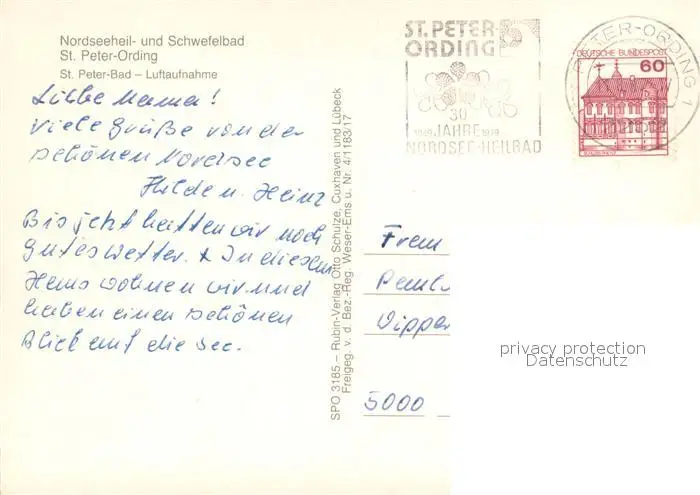 Nordseeheil- und Schwefelbad
St. Peter-Ording
St. Peter-Bad – Luftaufnahme
Liebe Mama!
Viele Grüße von der
schönen Nordsee
Hilde u. Heinz
Bis jetzt hatten wir noch
gutes Wetter. x In diesem
Haus wohnen wir und
haben einen schönen
Blick auf die See.
SPO 3185 – Rubin-Verlag Otto Schulze, Cuxhaven und Lübeck
Freigeg. v. d. Bez.-Reg. Weser-Ems u. Nr. 4/1183/17
ST. PETER-
ORDING
30
1949 JAHRE 1979
NORDSEE-HEILBAD
PETER-ORDING 1
DEUTSCHE BUNDESPOST
60
Frau
5000
privacy protection
Datenschutz